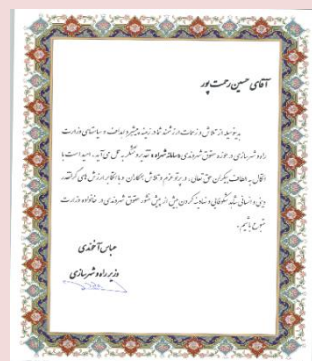 آقای حسین رحمت پور
بدینوسیله از تلاش و زحمات ارزشمند شما در زمینه پیشبرد اهداف و سیاستهای وزارت
راه و شهرسازی در حوزه حقوق شهروندی «سامانه شهراه» تقدیر و تشکر به عمل می آید. امید است با
اتکال به الطاف بیکران حق تعالی، در پرتو عزم و تلاش همکاران و با اتکا بر ارزش های گرانقدر
دینی و انسانی شاهد شکوفایی و نهادینه کردن بیش از پیش منشور حقوق شهروندی در خانواده وزارت
متبوع باشیم.
عباس آخوندی
وزیر راه و شهرسازی